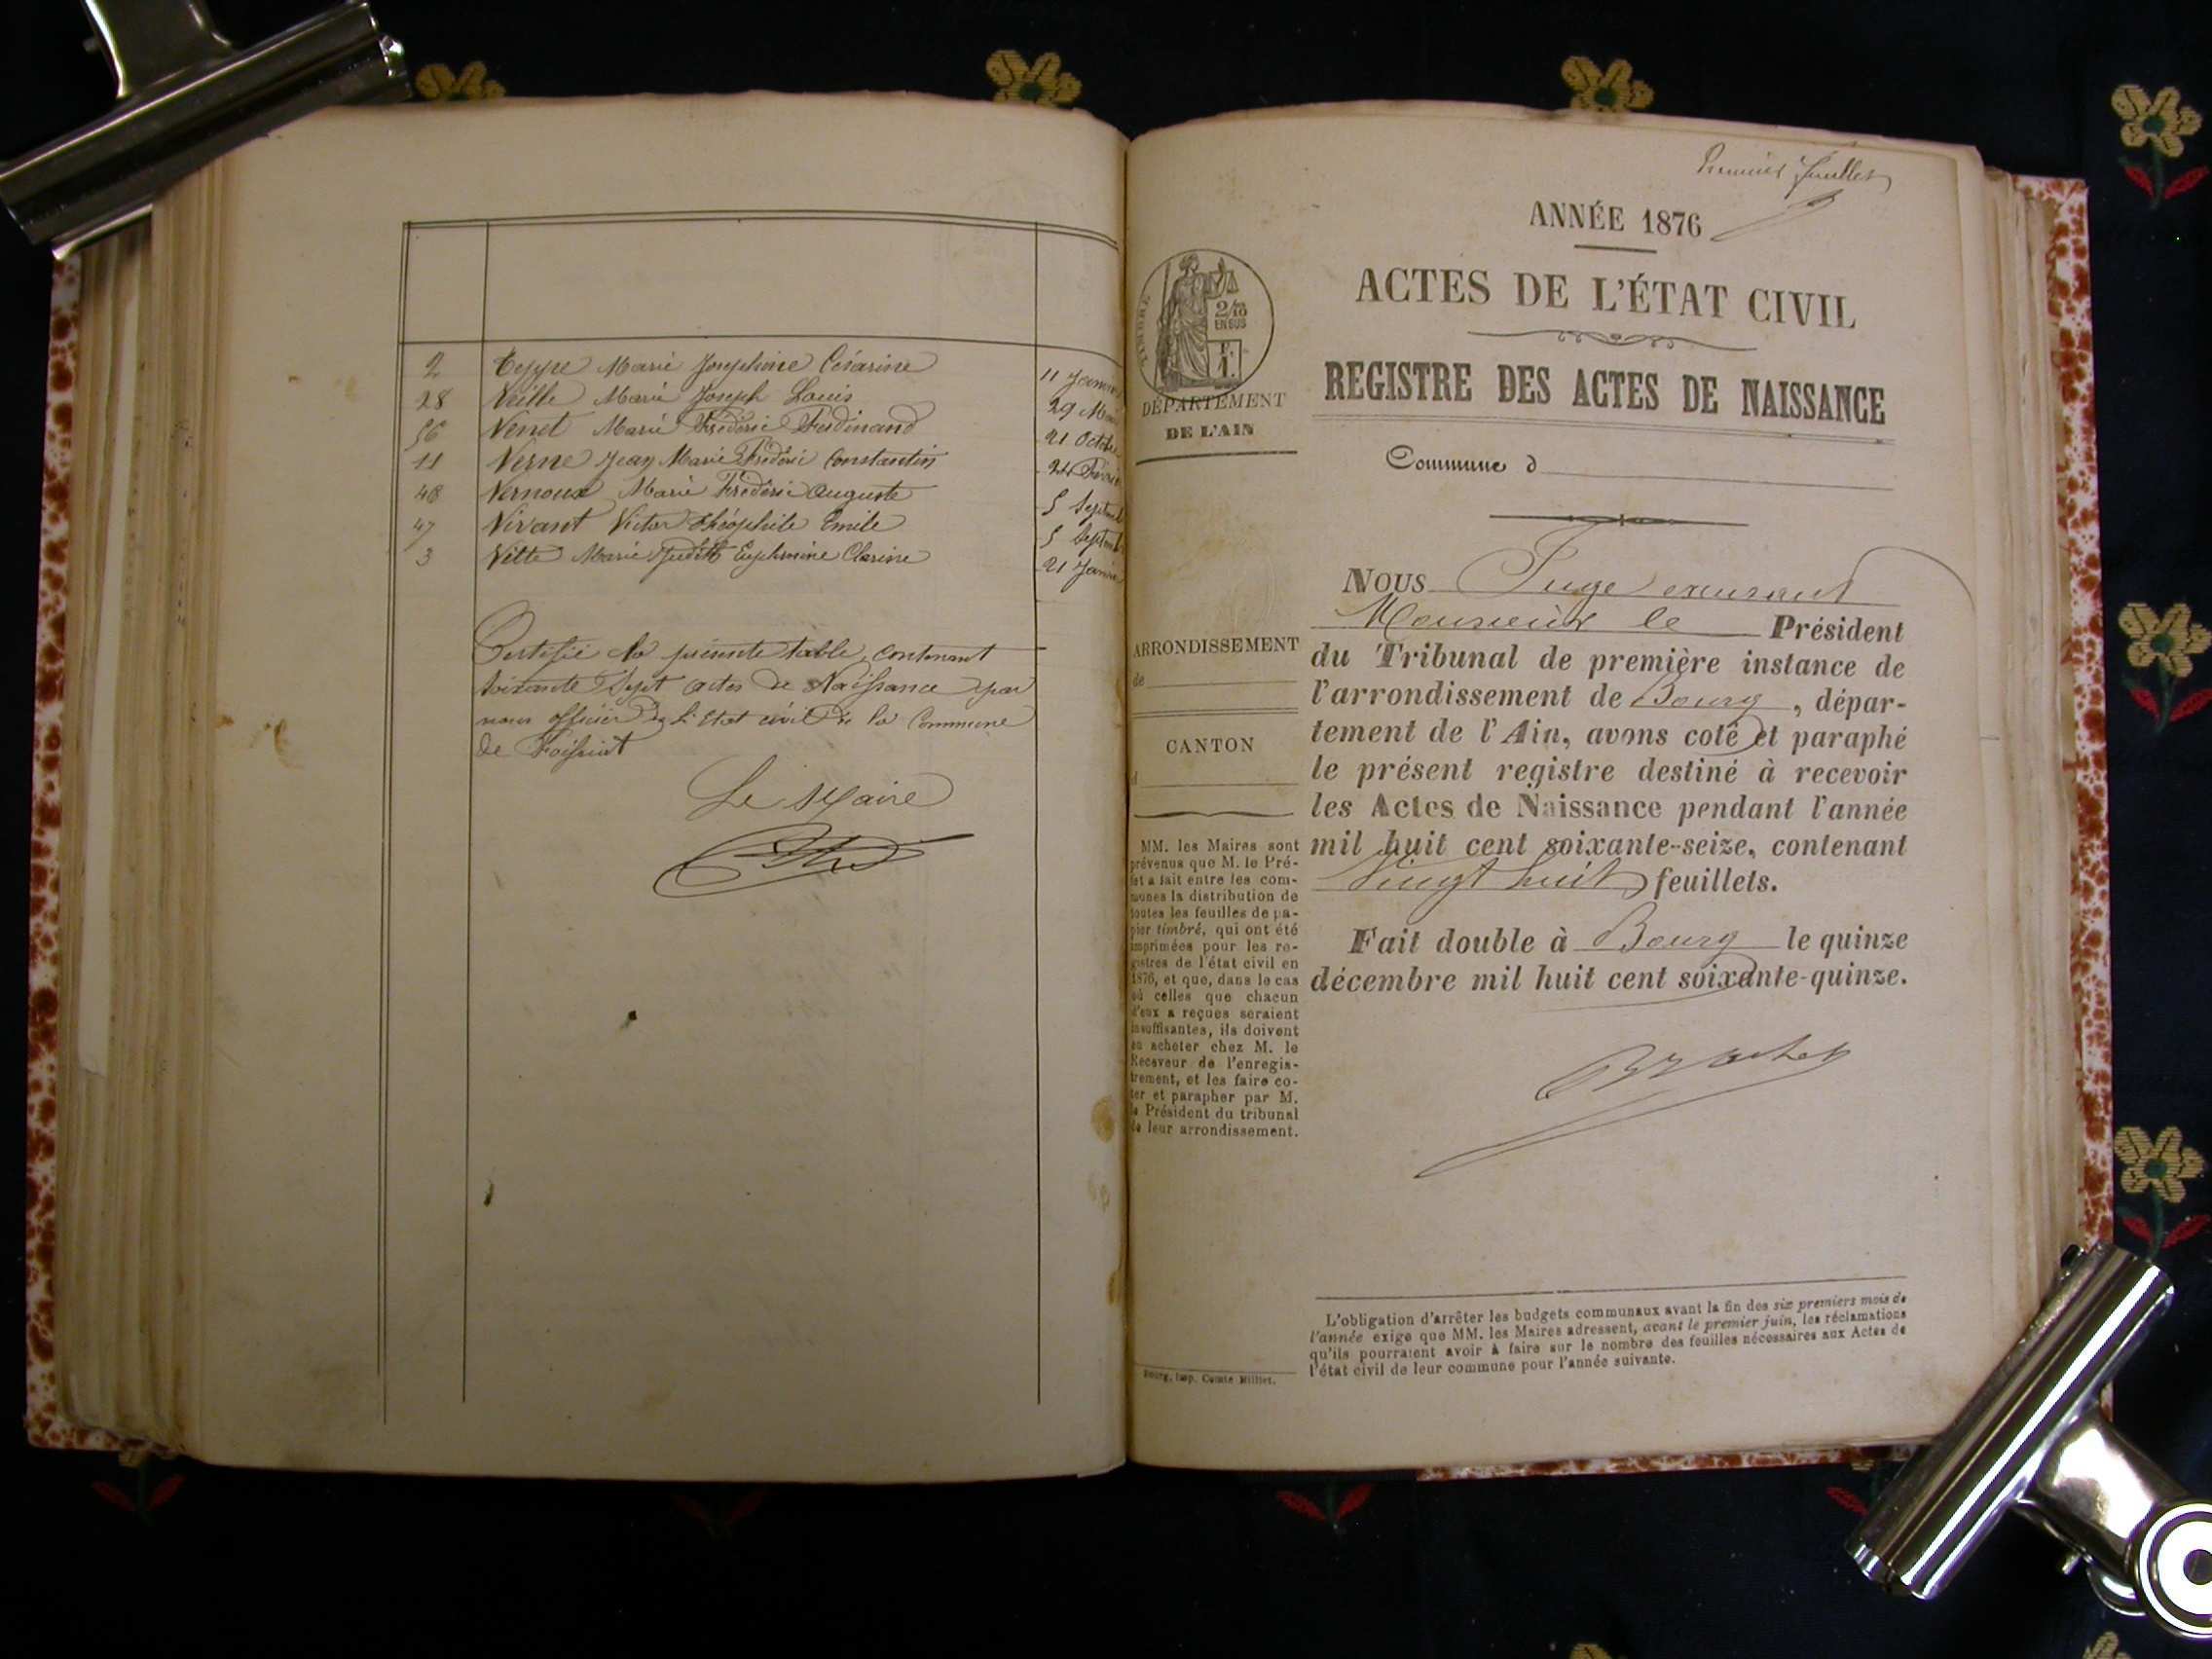 2 Teppe Marie Joséphine Césarine 11 Janvier
28 Veille Marie Joseph Louis 29
56 Venet Marie Frédéric Ferdinand 21 Octobre
11 Verne Jean Marie Frédéric Constantin 24 Février
48 Vernoux Marie Frédéric Auguste 5 Septemb
47 Vivant Victor Théophile Emile 5 Septemb
3 Vitte Marie Judith Euphrosine Clarine 21 Janvie
Certifié la présente table, contenant
soixante Sept actes de Naissance par
nous officier de l'Etat civil de la Commune
de Foissiat
Le Maire
Premier feuillet
ANNÉE 1876
ACTES DE L'ÉTAT CIVIL
REGISTRE DES ACTES DE NAISSANCE
Commune d
TIMBRE
2/10
EN SUS
F.
1.
DÉPARTEMENT
DE L'AIN
ARRONDISSEMENT
de
CANTON
d
MM. les Maires sont
prévenus que M. le Pré-
fet a fait entre les com-
munes la distribution de
toutes les feuilles de pa-
pier timbré, qui ont été
imprimées pour les re-
gistres de l'état civil en
1876, et que, dans le cas
où celles que chacun
d'eux a reçues seraient
insuffisantes, ils doivent
en acheter chez M. le
Receveur de l'enregis-
trement, et les faire co-
ter et parapher par M.
le Président du tribunal
de leur arrondissement.
Bourg, Imp. Comte Milliet.
NOUS Juge excusant
Monsieur le Président
du Tribunal de première instance de
l'arrondissement de Bourg, dépar-
tement de l'Ain, avons coté et paraphé
le présent registre destiné à recevoir
les Actes de Naissance pendant l'année
mil huit cent soixante-seize, contenant
Vingt huit feuillets.
Fait double à Bourg le quinze
décembre mil huit cent soixante-quinze.
L'obligation d'arrêter les budgets communaux avant la fin des six premiers mois de
l'année exige que MM. les Maires adressent, avant le premier juin, les réclamations
qu'ils pourraient avoir à faire sur le nombre des feuilles nécessaires aux Actes de
l'état civil de leur commune pour l'année suivante.